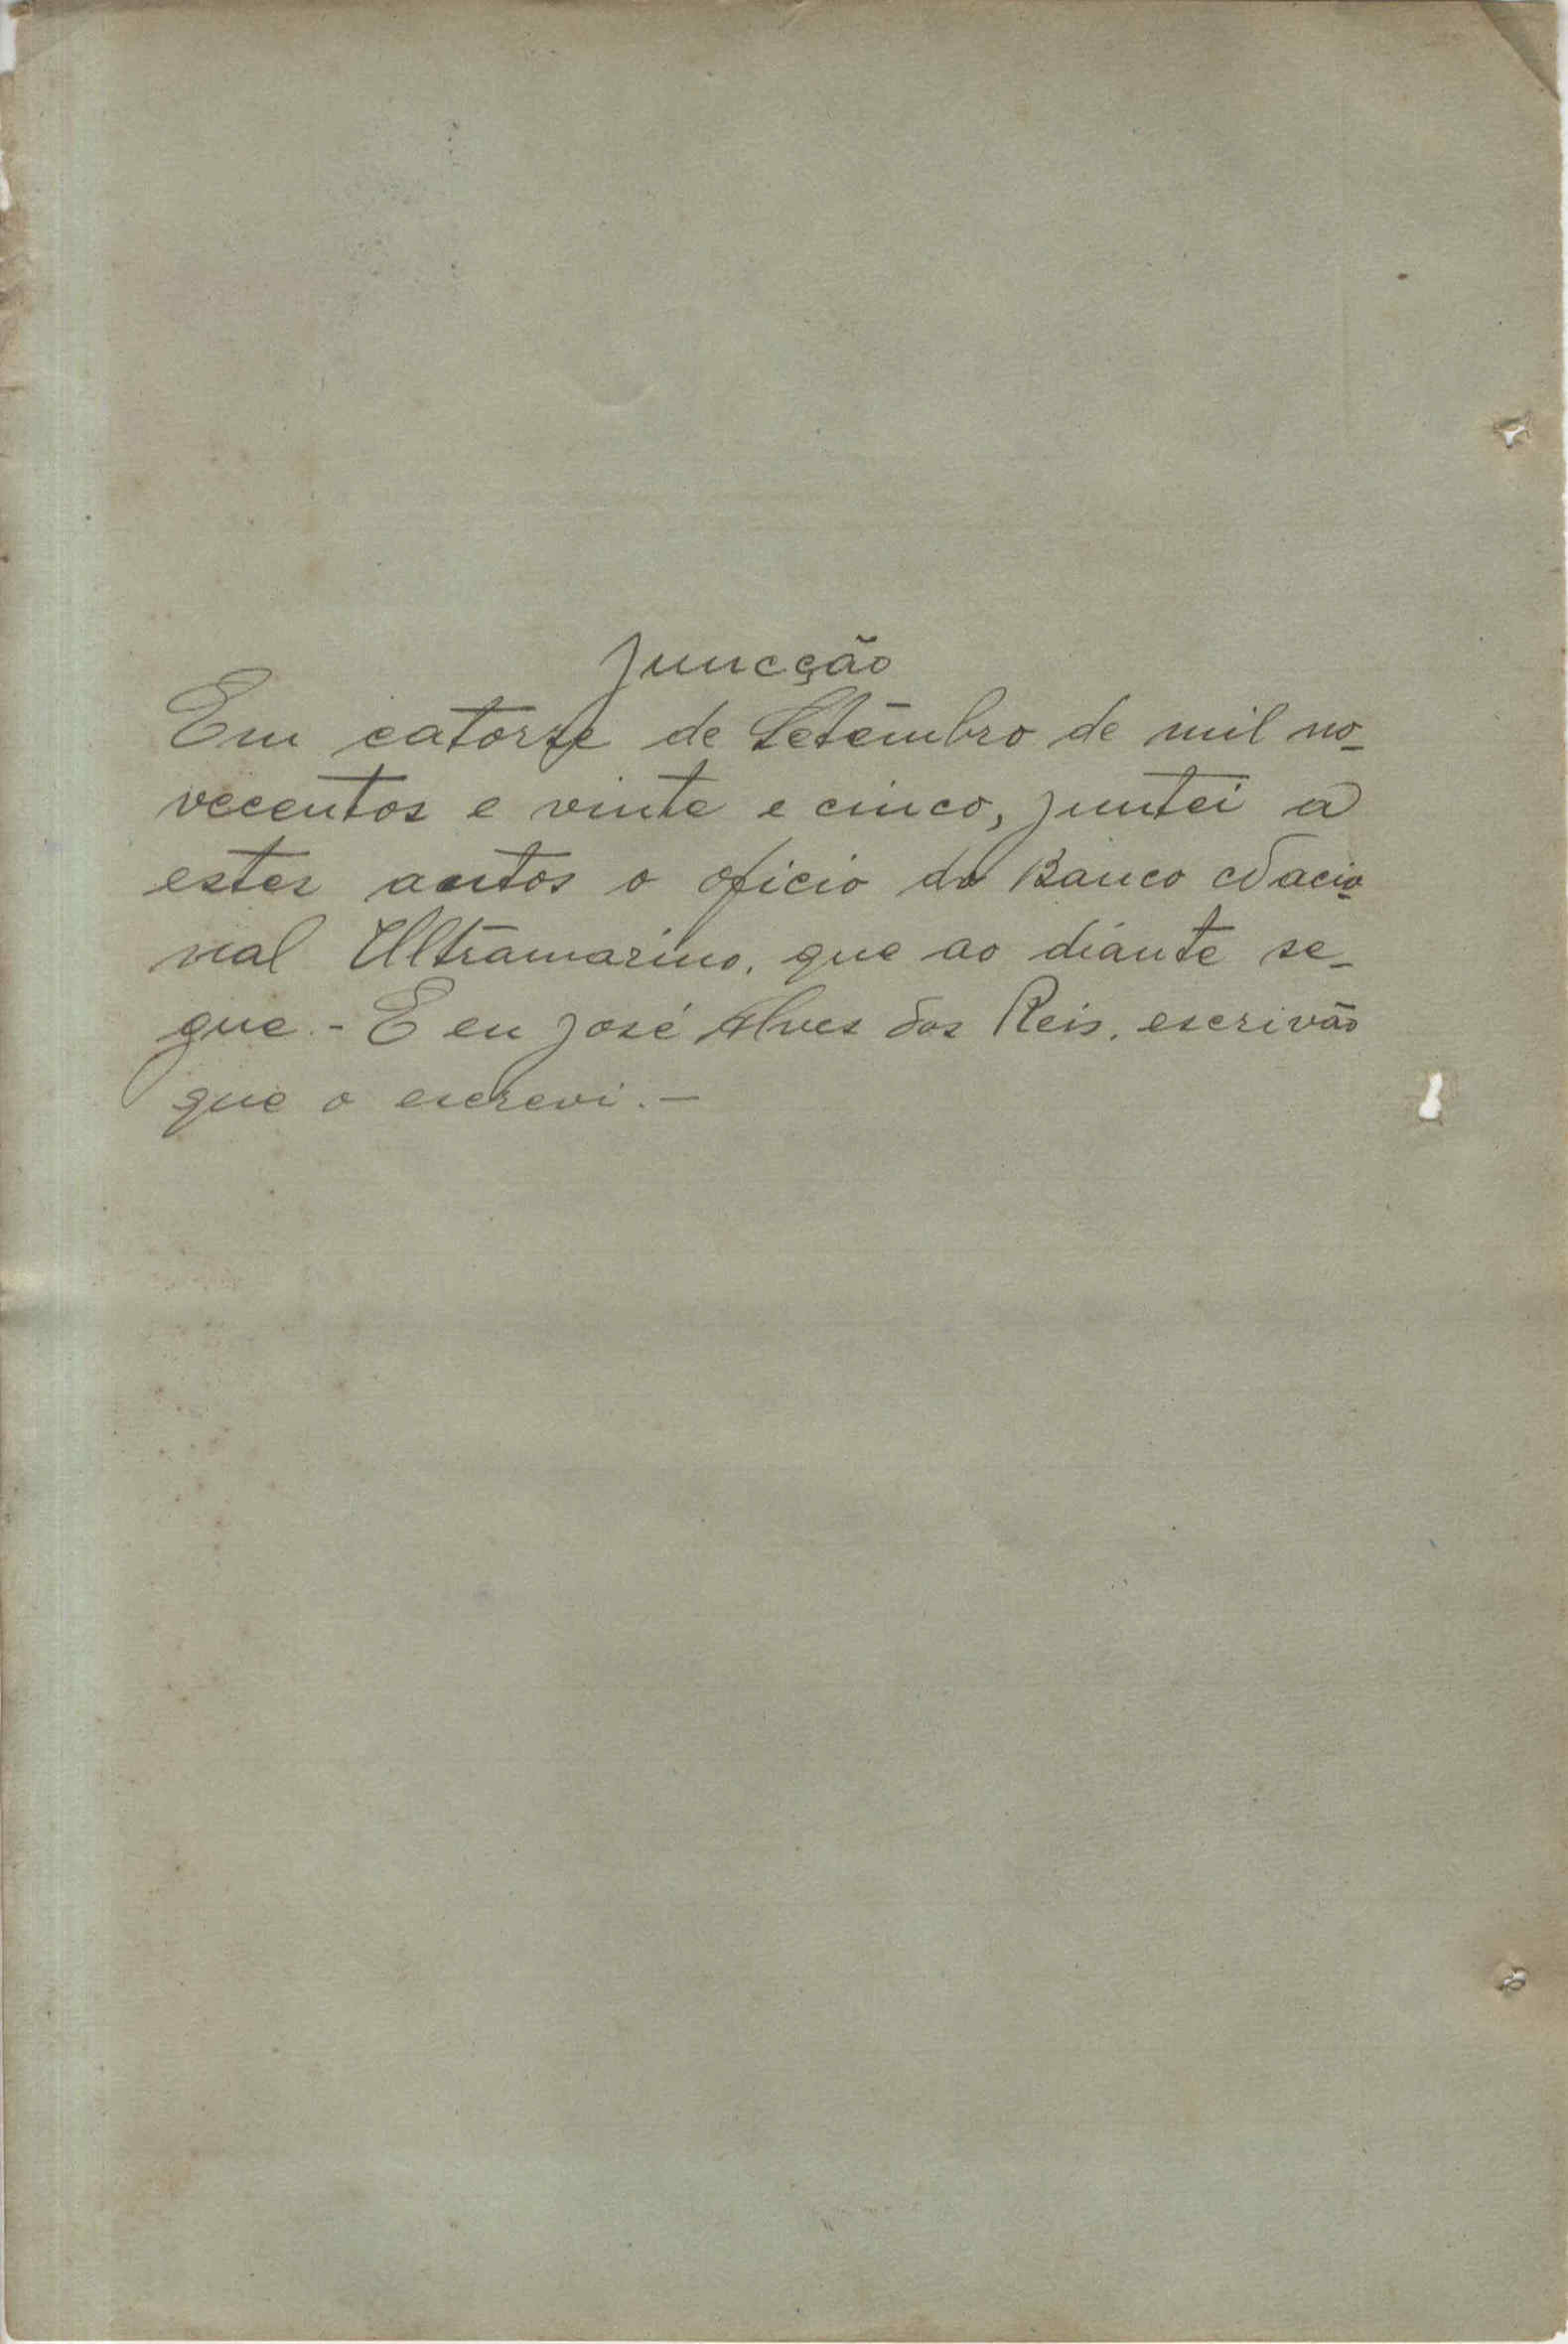 Juncção
Em catorze de Setembro de mil no-
vecentos e vinte e cinco, juntei a
estes autos o oficio do Banco Nacio-
nal Ultramarino, que ao diante se-
gue. - E eu José Alves dos Reis, escrivão
que o escrevi. -